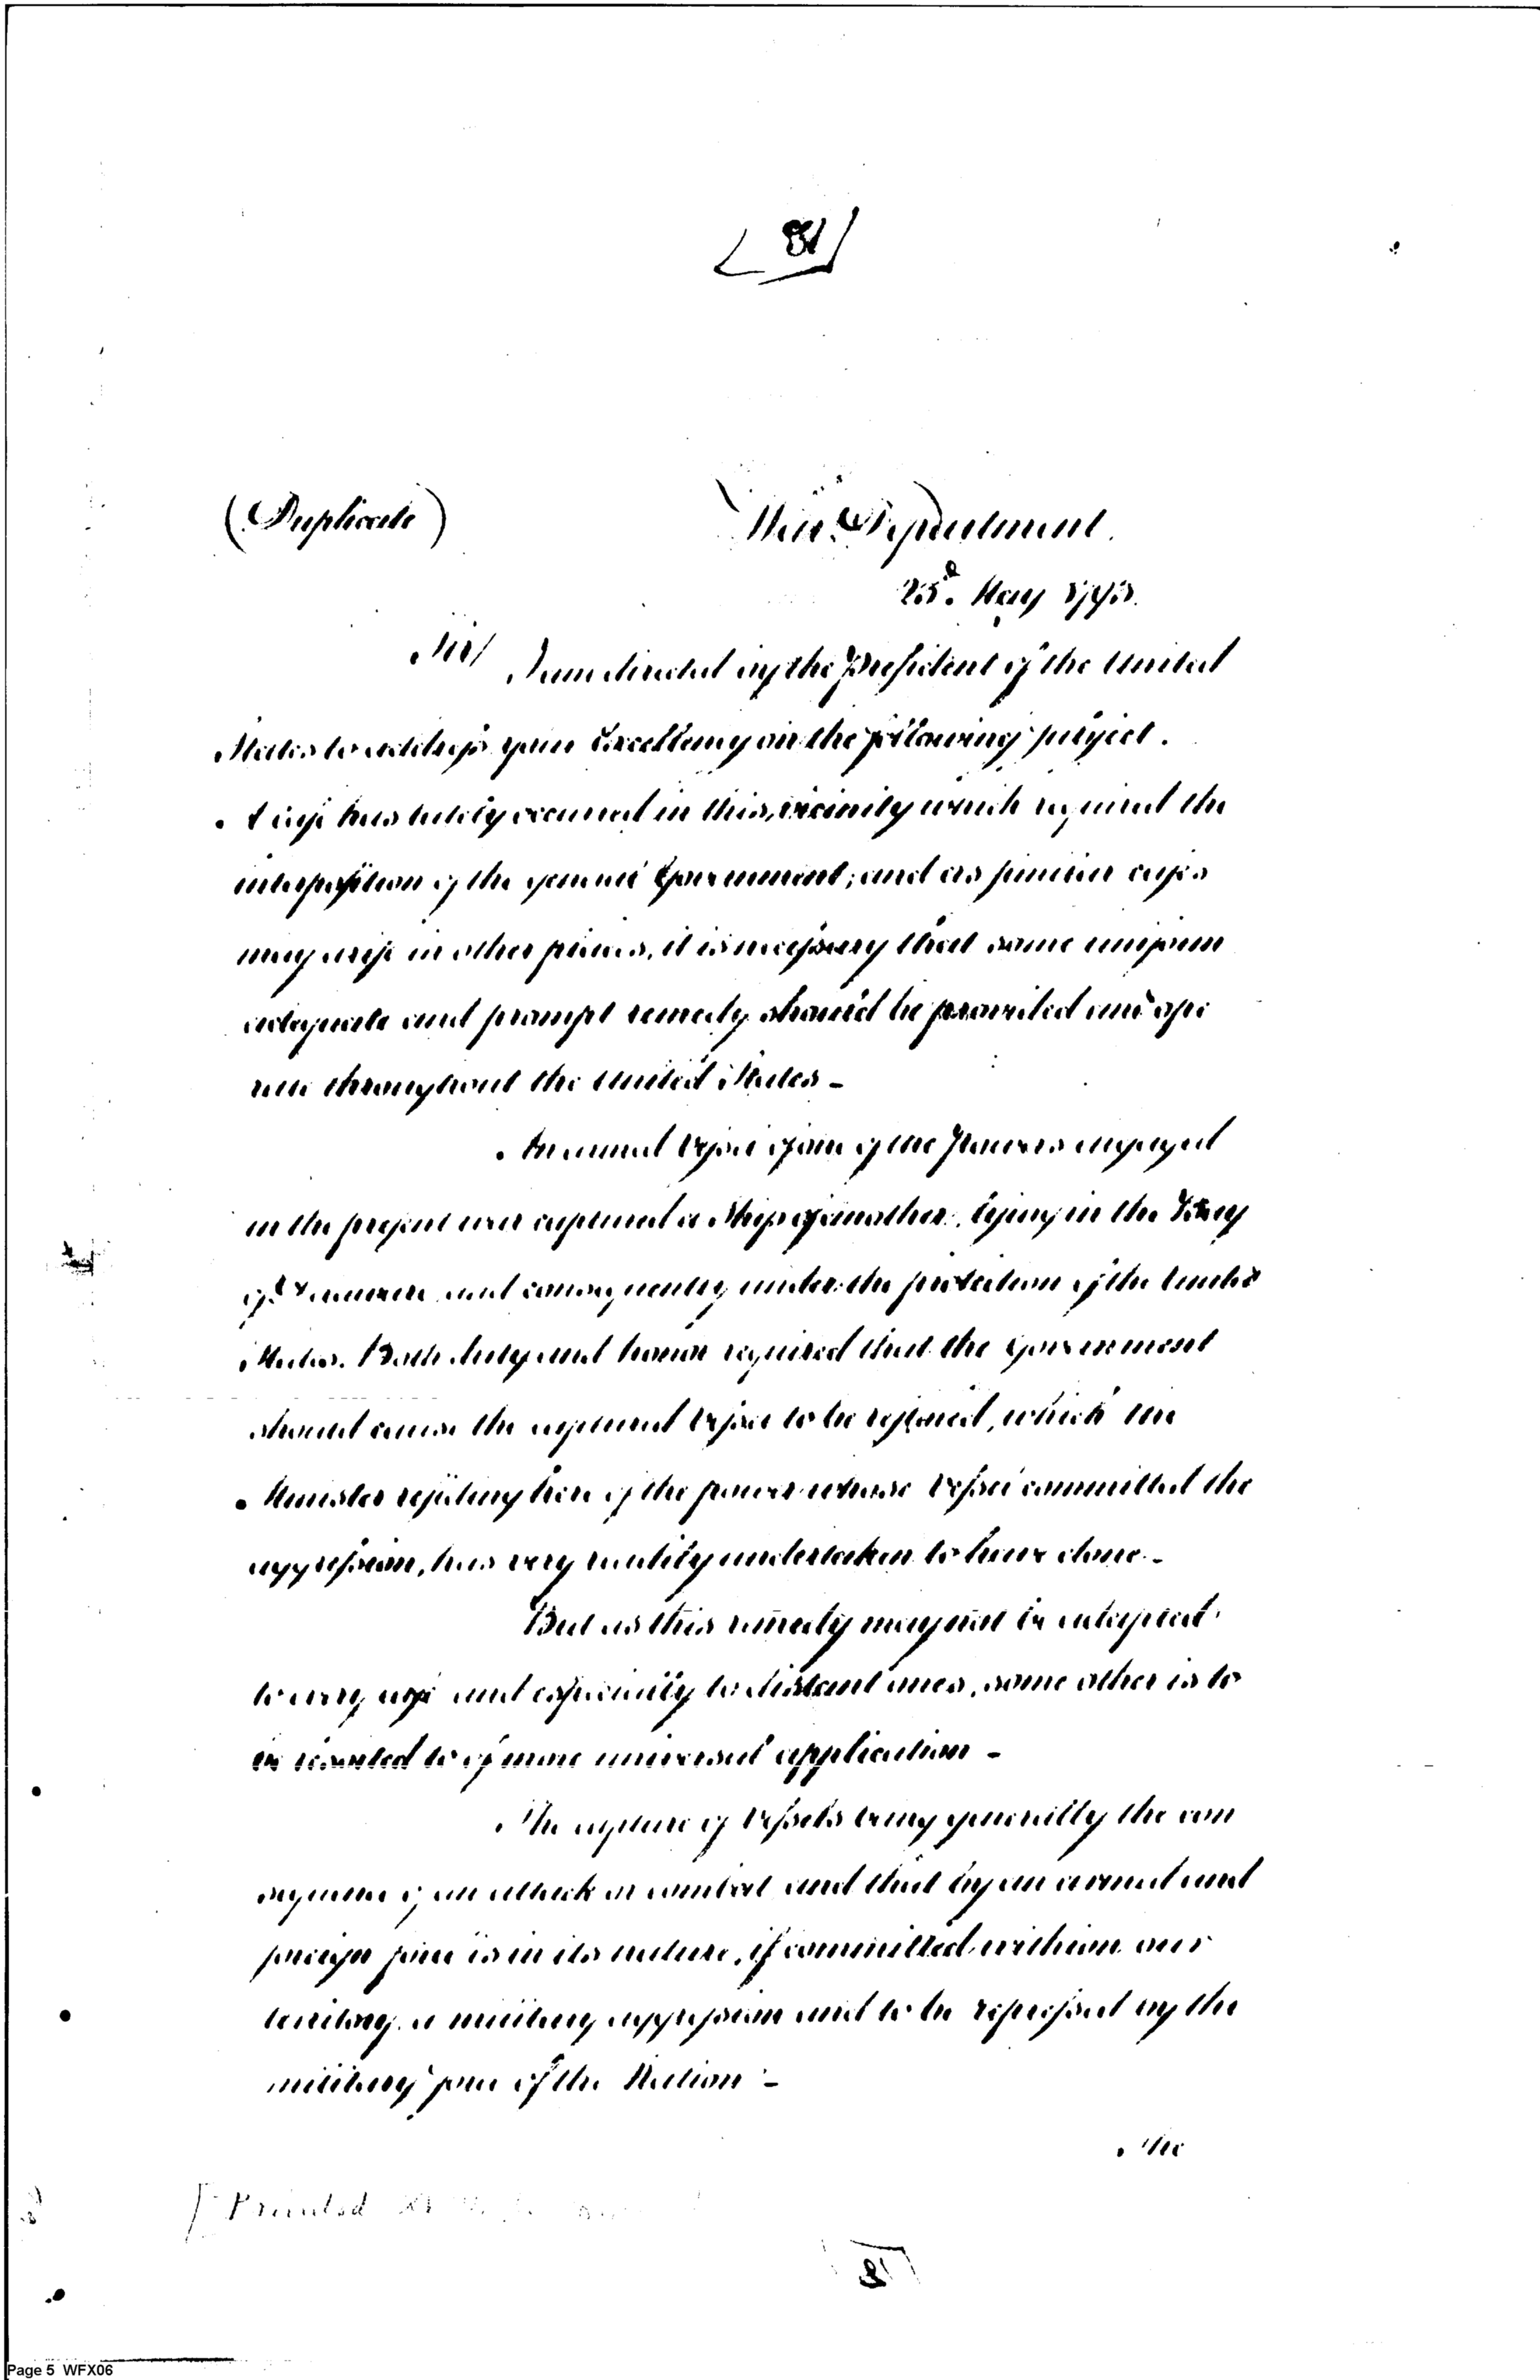 81
(Duplicate)
War Department.
23d. May 1793.
Sir/ I am directed by the President of the United
States to address your Excellency on the following subject.
A case has lately occurred in this vicinity which required the
interposition of the general Government; and as similar cases
may arise in other places, it is necessary that some uniform
adequate and prompt remedy should be provided and ope
rate throughout the United States –
An armed Vessel of one of the Powers engaged
in the present war captured a Ship of another, lying in the Bay
of Delaware and consequently under the protection of the United
States. Both duty and honor required that the Government
should cause the captured Vessel to be restored, which the
Minister residing here of the power whose Vessel committed the
aggression, has very readily undertaken to have done. –
But as this remedy may not be adapted
to every case and especially to distant ones, some other is to
be resorted to of more universal application –
The capture of Vessels being generally the con
sequence of an attack or combat and that by an armed and
foreign force is in its nature, if committed within our
territory a military aggression and to be repressed by the
military force of the Nation –
The
Printed
81
Page 5 WFX06